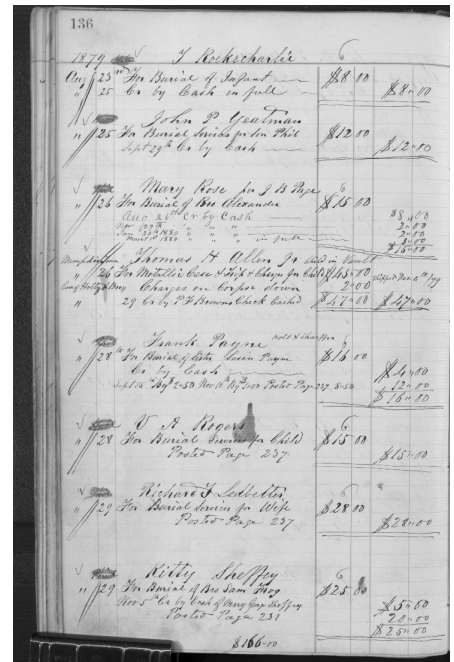 136
1879 J Rockscharlie 6
Aug 23 For Burial of Infant $8 00
" 25 Cr by Cash in full $8"00
John P Yeatman
" 25 For Burial Services for Son Phil $12 00
Sept 29th Cr by Cash $12"00
Mary Rose for J B Page 6
" 26 For Burial of Bro Alexander $15 00
Aug 26th Cr by Cash $8"00
Nov 29th " " " 2"00
Jan 26th 1880 " " " 2"00
" " " in full 3"00
$15"00
Thomas H Allen Jr Child in Vault
" 26 For Metallic Case & Child $45"00
Charges on Corpse down 2"00
" 29 Cr by P H Browns Check Cashed $47"00 $47"00
Frank Payne 6
" 28th For Burial of Sister Susan Payne $16 00
Cr by Cash $4"00
Sept 15th By $2-50 Posted Page 237 8-50 12"00
$16"00
V A Rogers 6
" 28 For Burial Services for Child $15 00
Posted Page 237 $15"00
Richard F Ledbetter 6
" 29 For Burial Services for Wife $28 00
Posted Page 237 $28"00
Kitty Sheffey 6
" 29 For Burial of Bro Sam $25 00
Nov 5th Cr by Cash of Mary Sheffey $5"00
Posted Page 231 20"00
$25"00
$166-00